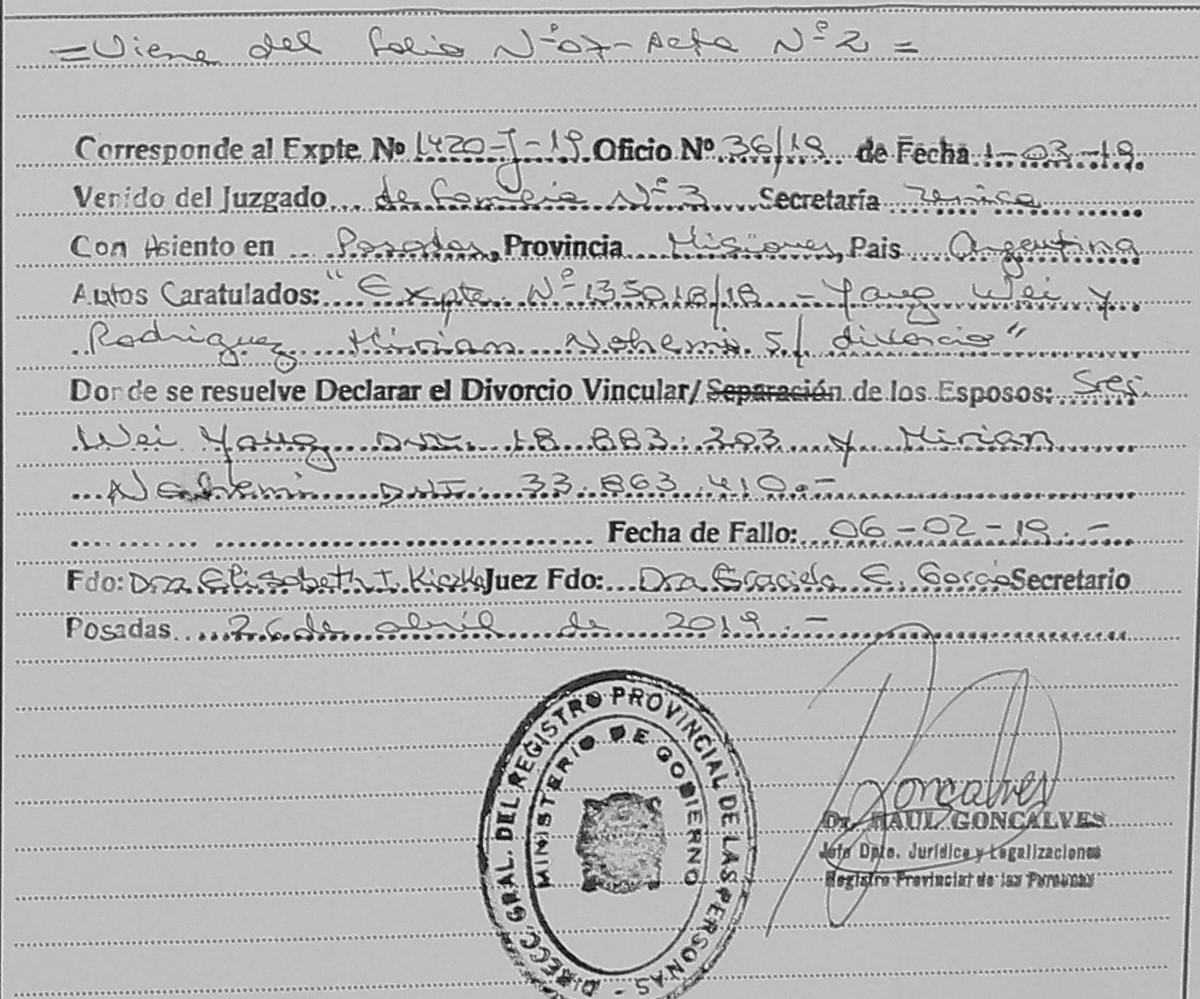 =Viene del folio Nº07-Acta Nº2=
Corresponde al Expte Nº 1420-J-19. Oficio Nº 36/19 de Fecha 1-03-19.
Venido del Juzgado de Familia Nº3 Secretaría única
Con Asiento en Posadas, Provincia Misiones, Pais Argentina
Autos Caratulados: "Expte Nº 135018/18 - Yang Wei y
Rodriguez Mirian Nohemi S/ divorcio"
Donde se resuelve Declarar el Divorcio Vincular/Separación de los Esposos: Sres.
Wei Yang DNI. 18.883.203 y Mirian
Nohemi DNI. 33.863.410.-
Fecha de Fallo: 06-02-19.-
Fdo: Dra Elisabeth I. Kiczka Juez Fdo: Dra Graciela E. Garcia Secretario
Posadas 26 de abril de 2019.-
DIRECC. GRAL. DEL REGISTRO PROVINCIAL DE LAS PERSONAS -
MINISTERIO DE GOBIERNO
Goncalves
Dr. RAUL GONCALVES
Jefe Dpto. Jurídica y Legalizaciones
Registro Provincial de las Personas